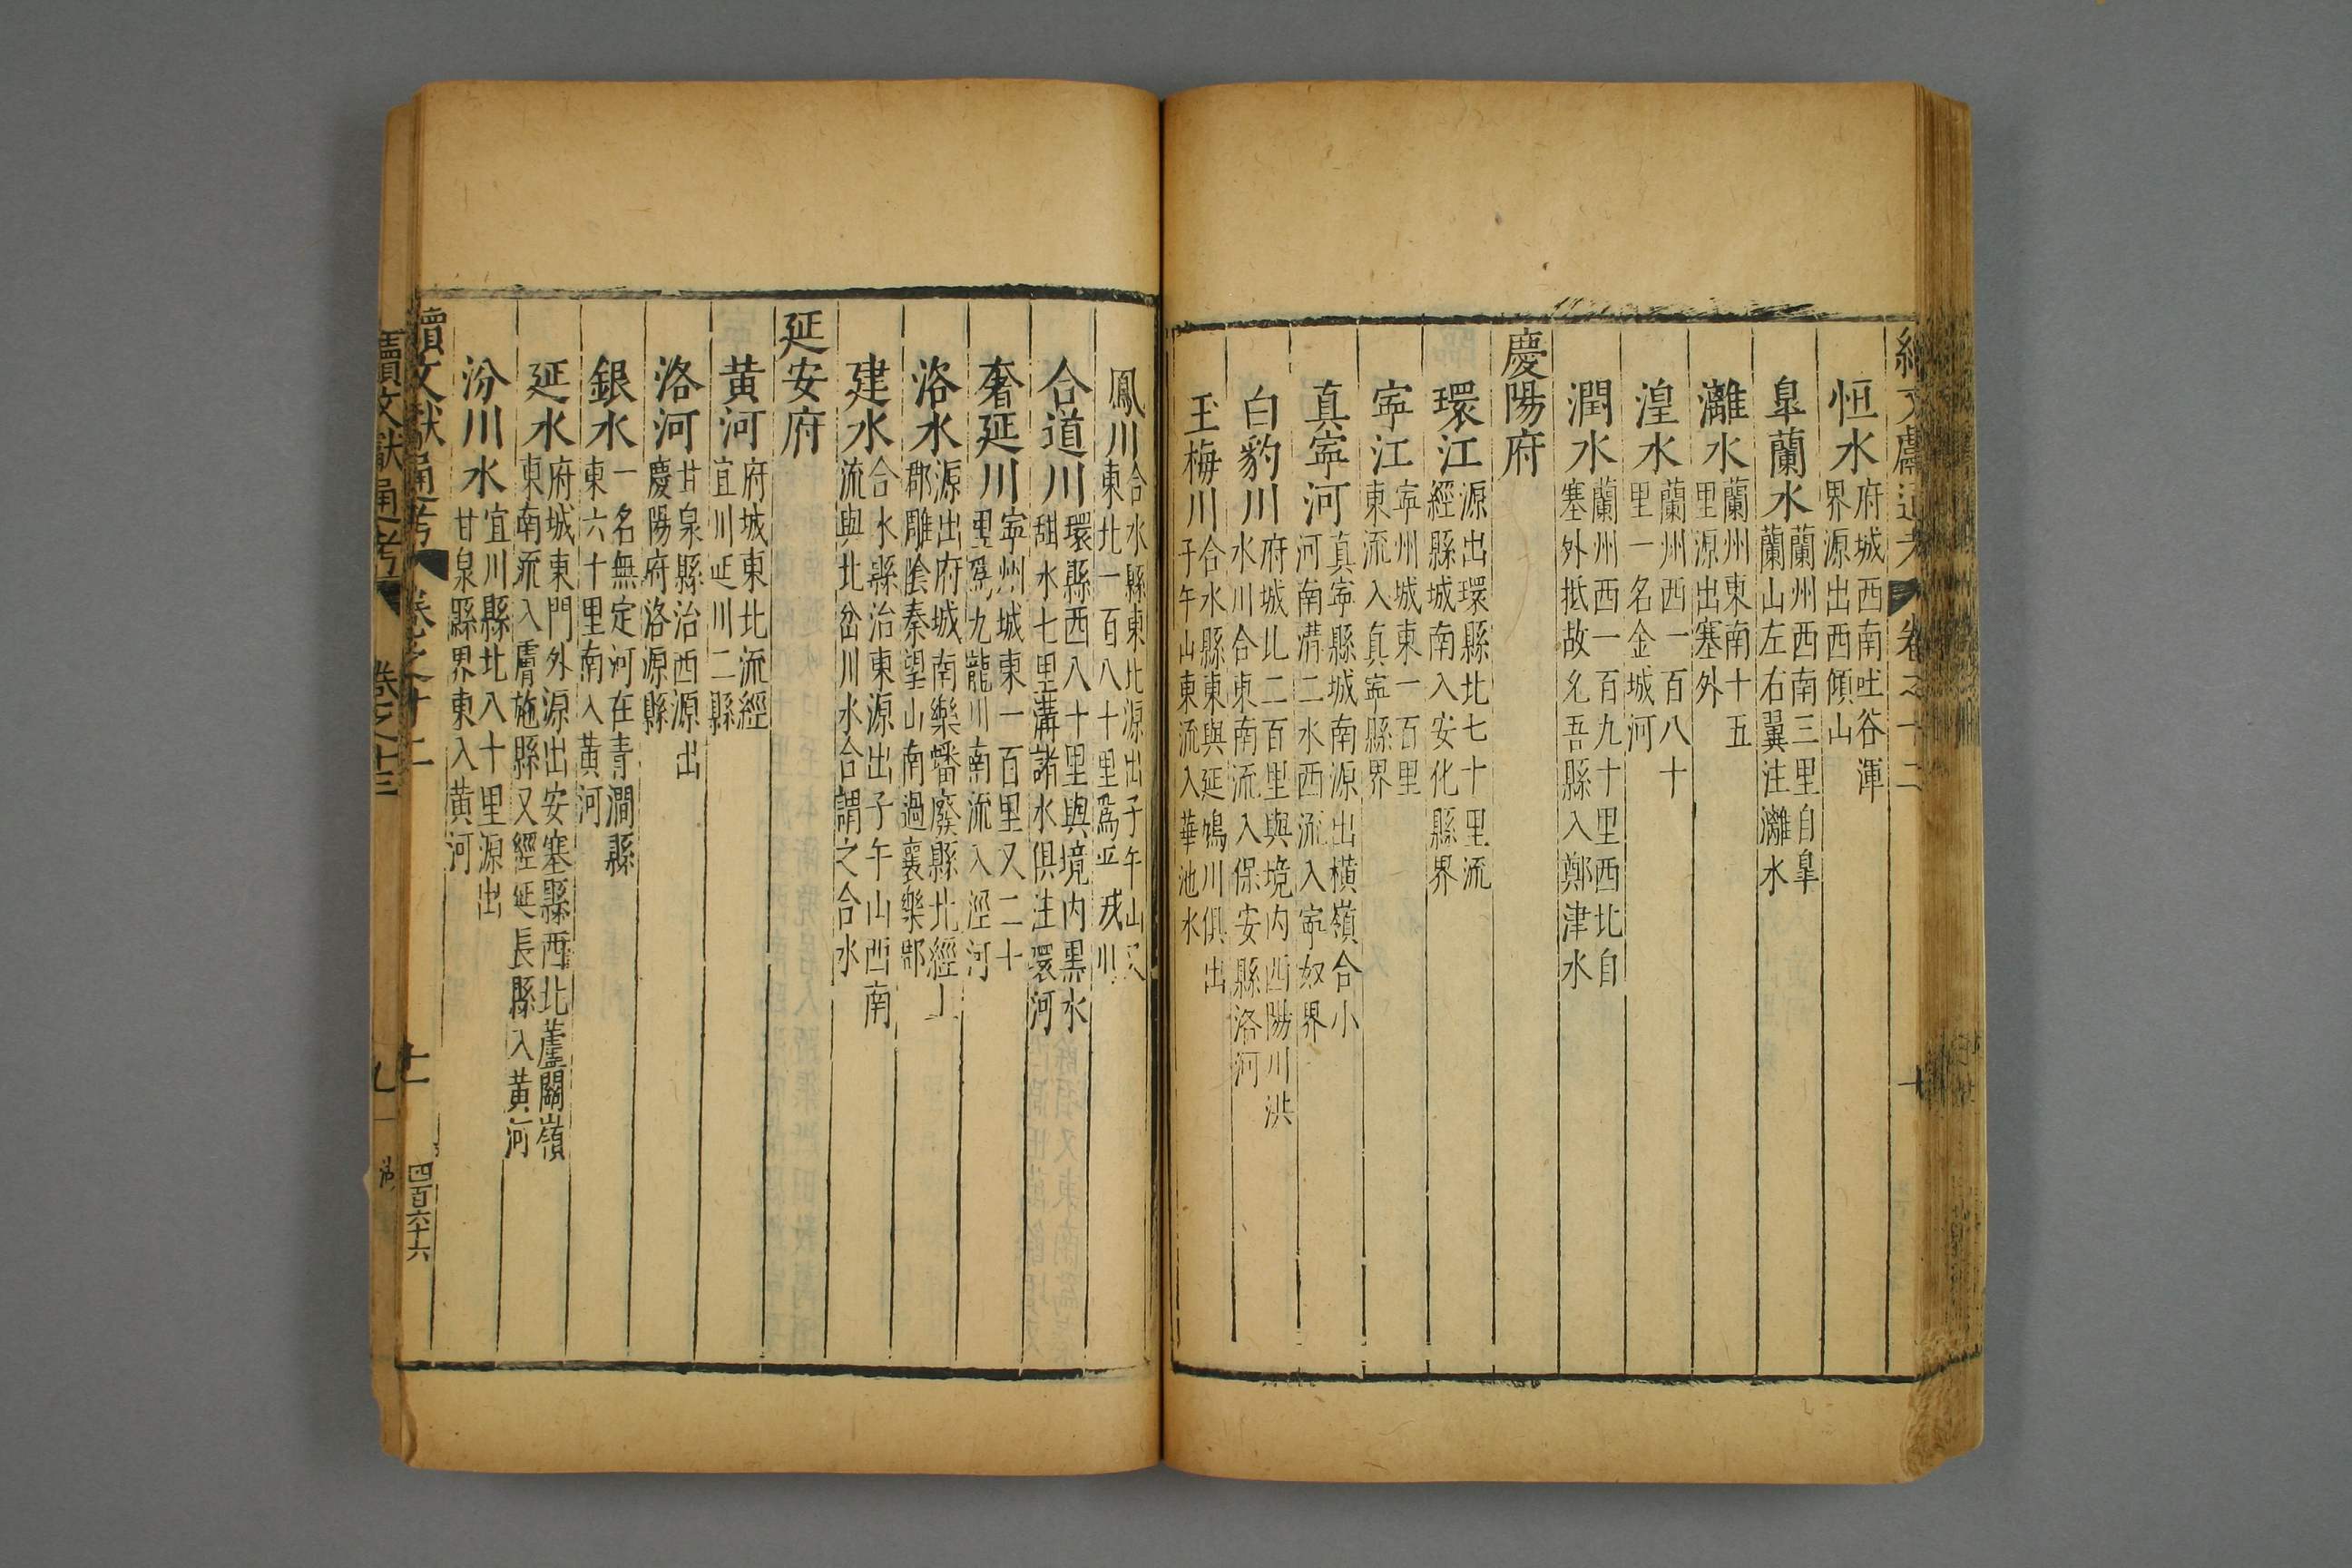 恒水府城西南吐谷渾
界源出西傾山
臯蘭水蘭州西南三里自臯
蘭山左右翼注灕水
灕水蘭州東南十五
里源出塞外
湟水蘭州西一百八十
里一名金城河
澗水蘭州西一百九十里西北自
塞外抵故允吾縣入鄭津水
慶陽府
環江源出環縣北七十里流
經縣城南入安化縣界
寧江寧州城東一百里
東流入真寧縣界
真寧河真寧縣城南源出橫嶺合小
河南溝二水西流入寧奴界
白豹川府城北二百里與境内西陽川洪
水川合東南流入保安縣洛河
玉梅川合水縣東與延鳩川俱出
子午山東流入華池水
鳳川合水縣東北源出子午山又
東北一百八十里爲平戎川
合道川環縣西八十里與境内黑水
甜水七里溝諸水俱注環河
奢延川寧州城東一百里又二十
里爲九龍川南流入涇河
洛水源出府城南樂蟠廢縣北經上
郡雕陰秦望山南過襄樂鄣
建水合水縣治東源出子午山西南
流與北岔川水合謂之合水
延安府
黃河府城東北流經
宜川延川二縣
洛河甘泉縣治西源出
慶陽府洛源縣
銀水一名無定河在青澗縣
東六十里南入黃河
延水府城東門外源出安塞縣西北蘆關嶺
東南流入膚施縣又經延長縣入黃河
汾川水宜川縣北八十里源出
甘泉縣界東入黃河
續文獻通考 卷之十二 十一 四百六十六
續文獻通考 卷之十三